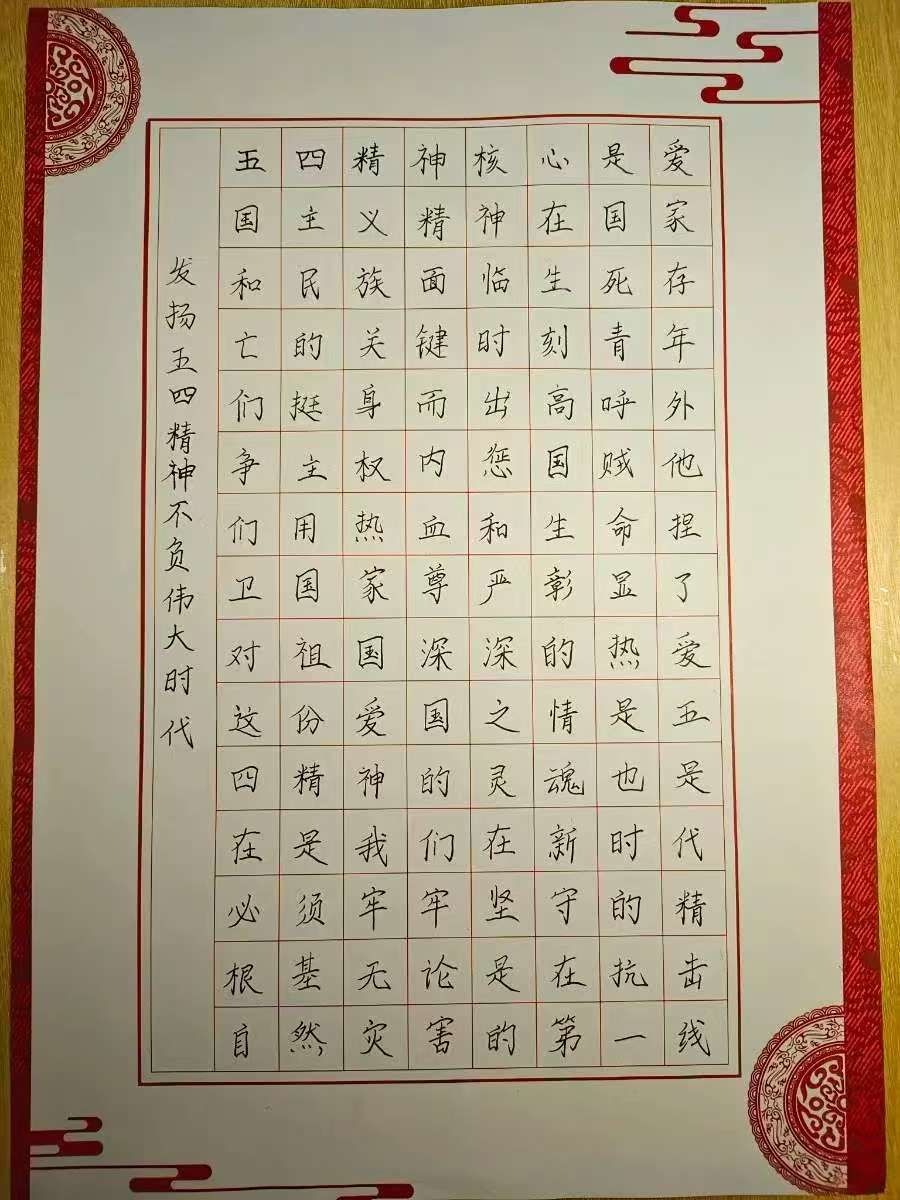 五四精神核心是爱
国主义精神在国家
和民族面临生死存
亡的关键时刻青年
们挺身而出高呼外
争主权内惩国贼他
们用热血和生命捏
卫国家尊严彰显了
对祖国深深的热爱
这份爱国之情是五
四精神的灵魂也是
在是我们在新时代
必须牢牢坚守的精
根基无论是在抗击
自然灾害的第一线
发扬五四精神不负伟大时代